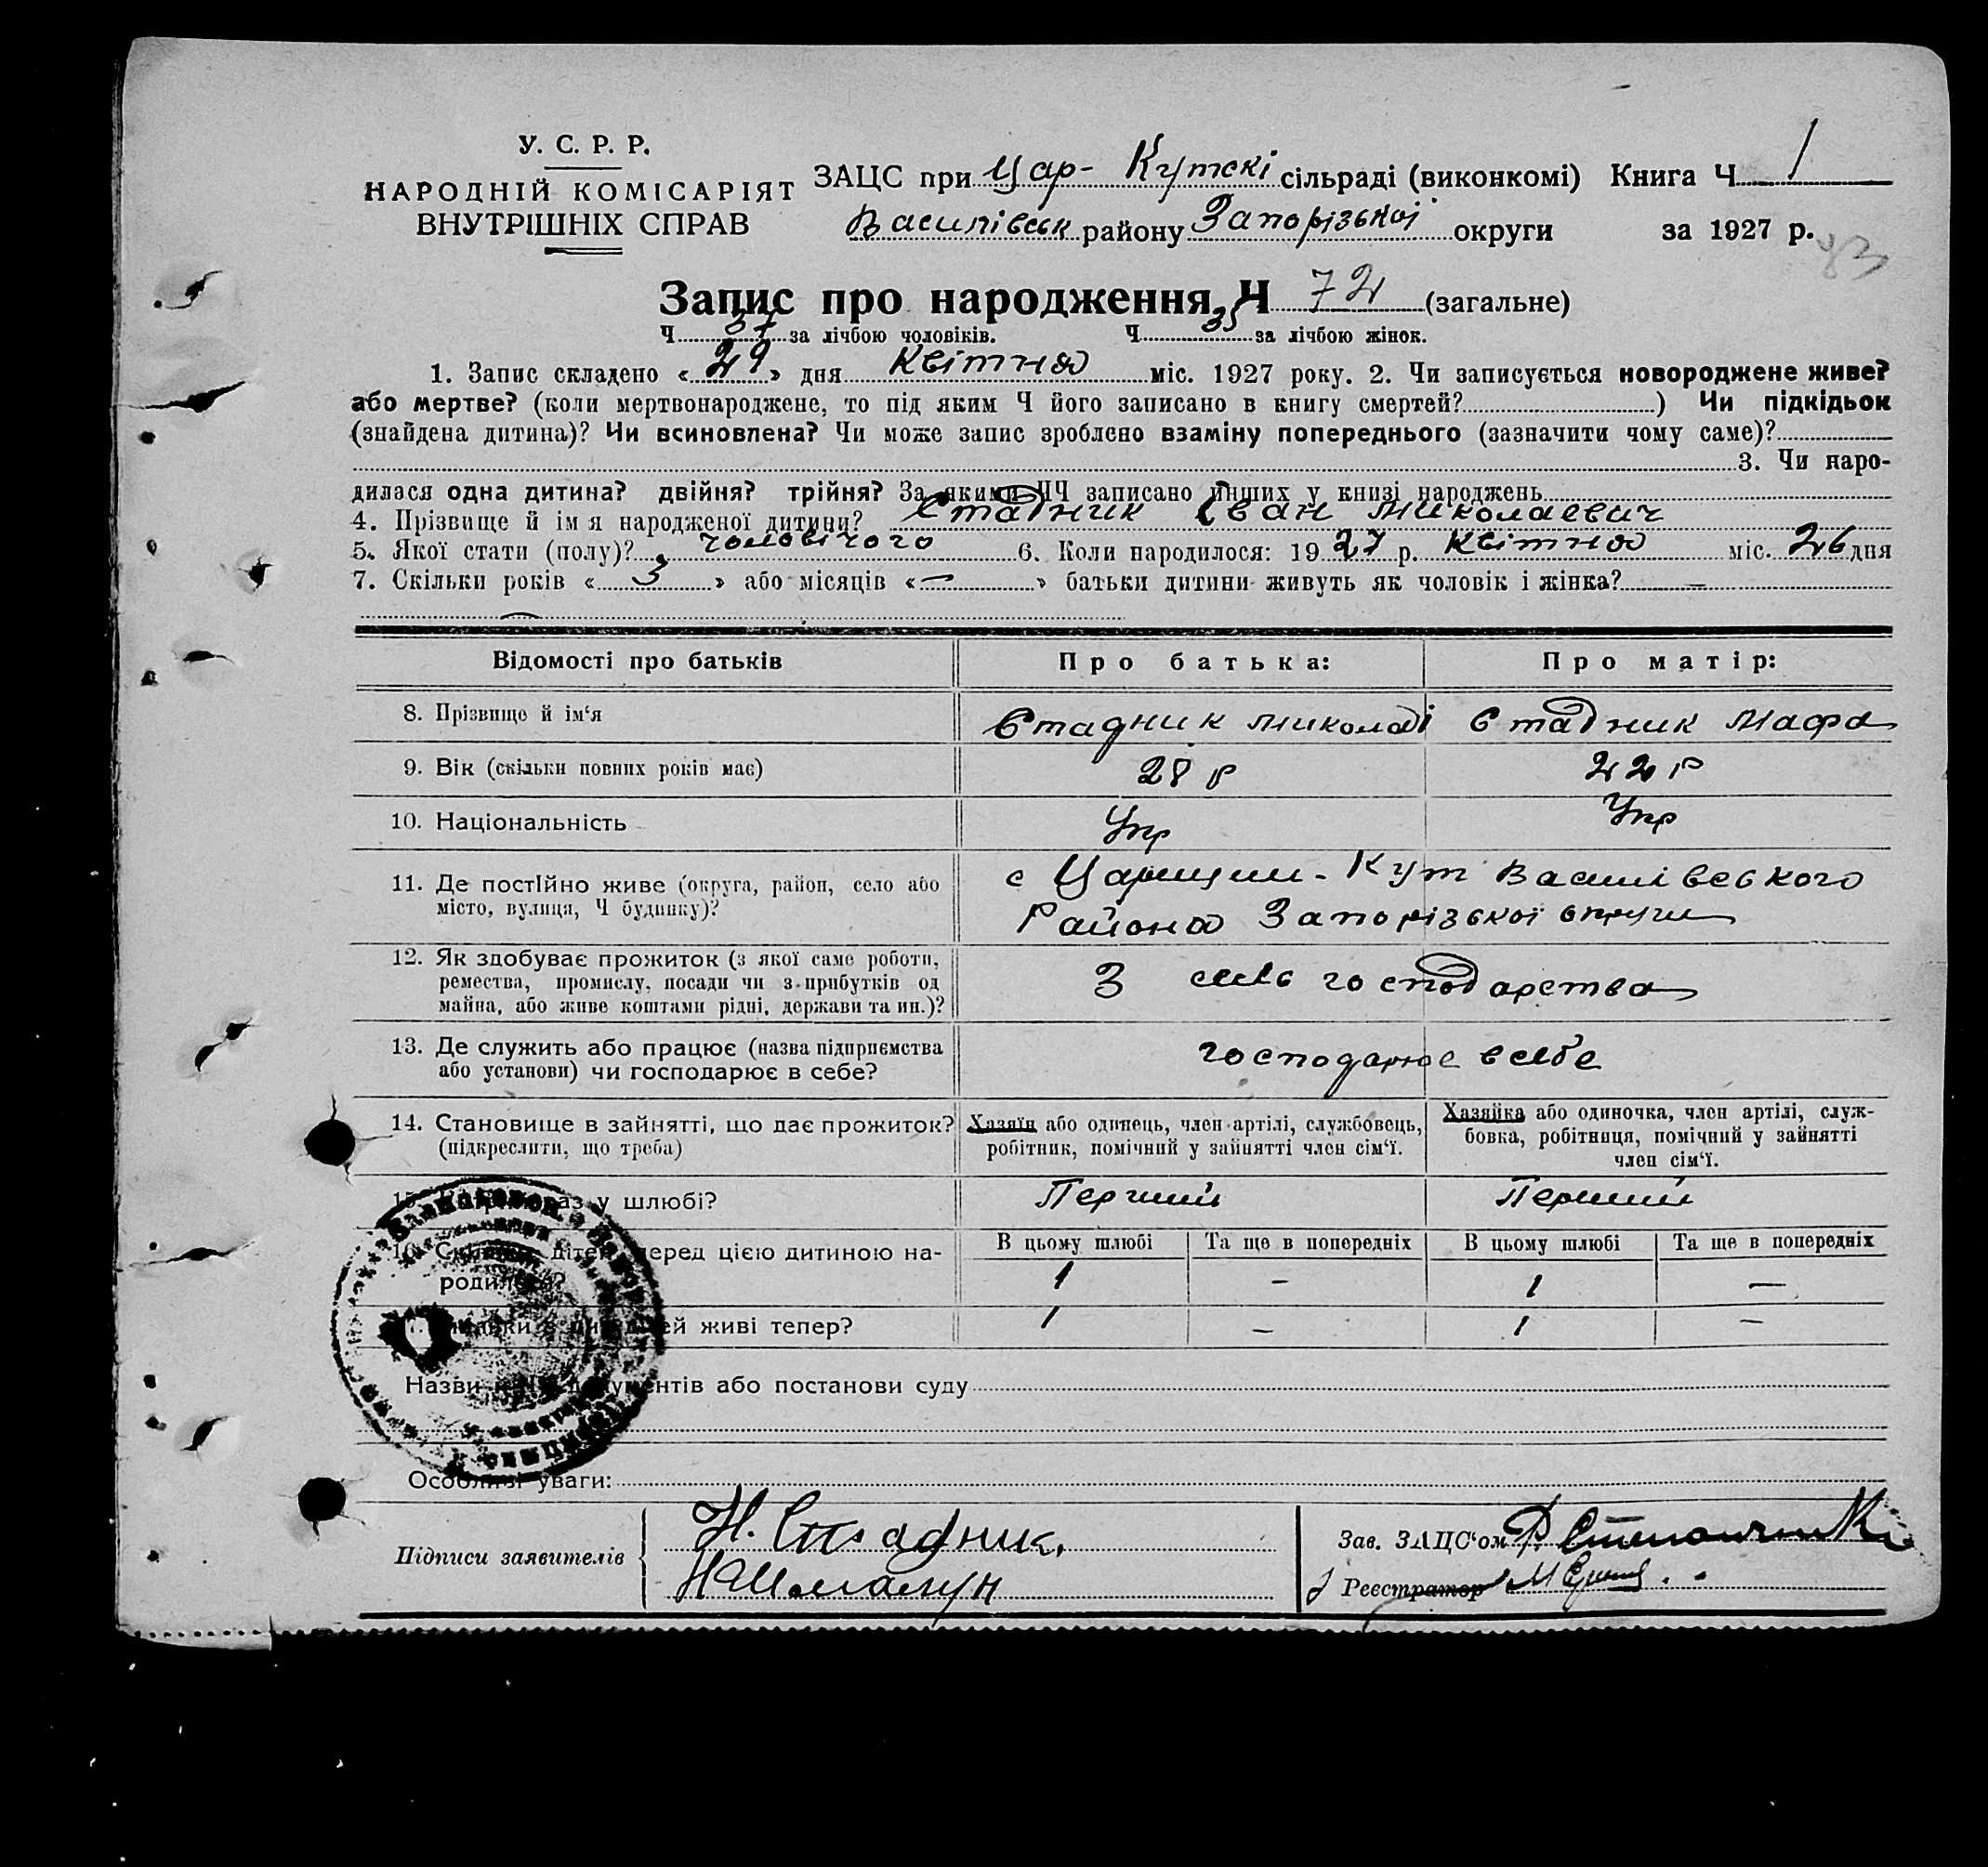 У. С. Р. Р.
НАРОДНІЙ КОМІСАРІЯТ
ВНУТРІШНІХ СПРАВ
ЗАЦС при Цар- Кутскі сільраді (виконкомі) Книга Ч 1
Василівськ району Запорізької округи за 1927 р.
83
Запис про народження Ч 72 (загальне)
Ч 37 за лічбою чоловіків. Ч 35 за лічбою жінок.
1. Запис складено « 29 » дня Квітня міс. 1927 року. 2. Чи записується новороджене живе?
або мертве? (коли мертвонароджене, то під яким Ч його записано в книгу смертей? ) Чи підкідьок
(знайдена дитина)? Чи всиновлена? Чи може запис зроблено взаміну попереднього (зазначити чому саме)?
3. Чи наро-
дилася одна дитина? двійня? трійня? За якими ЧЧ записано инших у книзі народжень
4. Прізвище й імя народженої дитини? Стадник Іван Миколаевич
5. Якої стати (полу)? чоловічого 6. Коли народилося: 19 27 р. Квітня міс. 26 дня
7. Скільки років « 3 » або місяців « — » батьки дитини живуть як чоловік і жінка? —
Відомості про батьків Про батька: Про матір:
8. Прізвище й ім‘я Стадник Миколай Стадник Мафа
9. Вік (скільки повних років має) 28 р 22 р
10. Національність Укр Укр
11. Де постійно живе (округа, район, село або с Царицин-Кут Василівського
місто, вулиця, Ч будинку)? Района Запорізької округи
12. Як здобуває прожиток (з якої саме роботи,
ремества, промислу, посади чи з прибутків од З сель господарства
майна, або живе коштами рідні, держави та ин.)?
13. Де служить або працює (назва підприємства господарює в себе
або установи) чи господарює в себе?
14. Становище в зайнятті, що дає прожиток? Хазяїн або одинець, член артілі, службовець, Хазяйка або одиночка, член артілі, служ-
(підкреслити, що треба) робітник, помічний у зайнятті член сім‘ї. бовка, робітниця, помічний у зайнятті
член сім‘ї.
раз у шлюбі? Перший Перший
16. Скільки дітей перед цією дитиною на- В цьому шлюбі Та ще в попередніх В цьому шлюбі Та ще в попередніх
родилося? 1 - 1 —
живі тепер? 1 — 1 —
Назви документів або постанови суду
Особливі уваги:
Підписи заявителів Н. Стадник,
Зав. ЗАЦС‘ом
Реєстратор